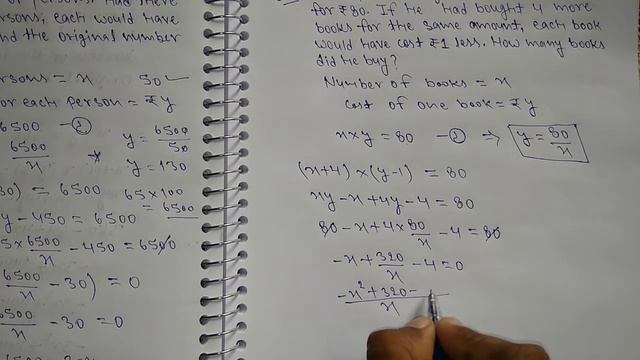 of persons. Had there
rsons, each would have
nd the original number
rsons = x 50
or each person = ₹y
6500 - ②
y = 6500/50
6500/x
y = 130
30) = 6500
65×100
= 6500
y - 450 = 6500
5× 6500/x - 450 = 6500
6500/x - 30) = 0
6500/x - 30 = 0
for ₹80. If he had bought 4 more
books for the same amount, each book
would have cost ₹1 less. How many books
did he buy?
Number of books = x
Cost of one book = ₹y
x×y = 80 - ① ⇒ y = 80/x
(x+4) × (y-1) = 80
xy - x + 4y - 4 = 80
80 - x + 4× 80/x - 4 = 80
-x + 320/x - 4 = 0
-x² + 320 - /x